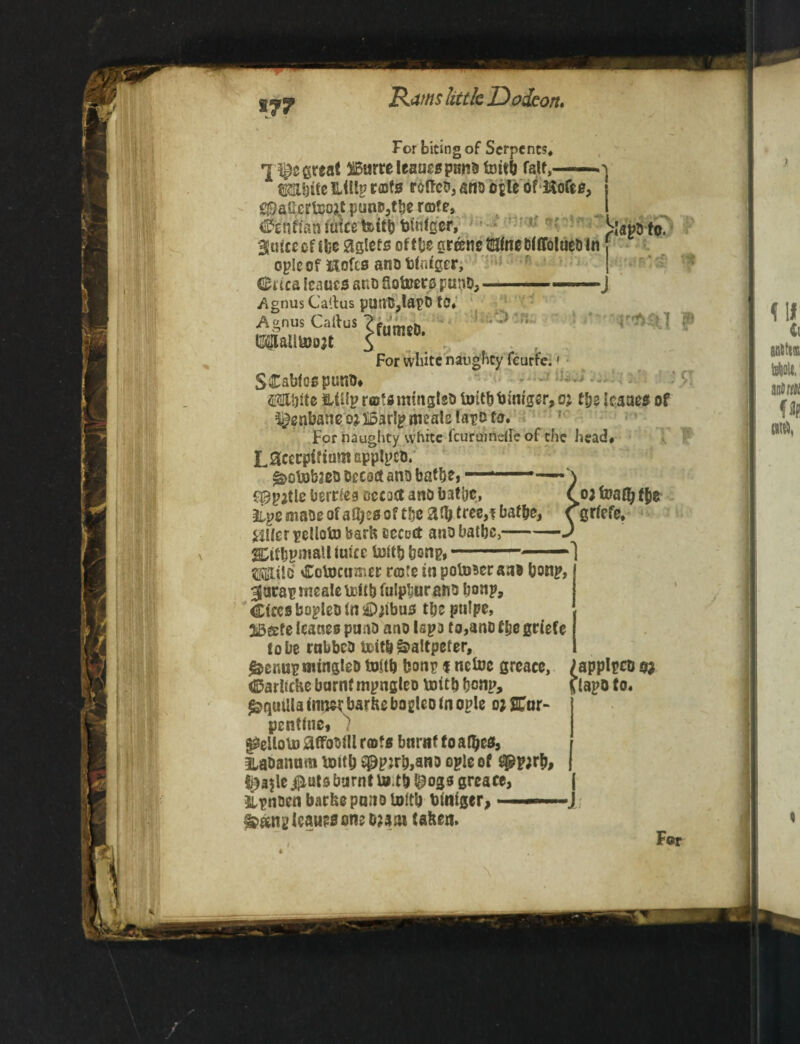 177
Rams little Dodeon.
For biting of Serpents.
THe great Burre leaues pund with salt,
White Lilly roots rosted, and oyle of Roses,
Masterwort pund, the roote,
Gentian iuice with viniger,
Iuice of the Aglets of the greene Wine dissolued in
oyle of Roses and viniger,
Erica leaues and flowers pund,
lapd to.
Agnus Castus pund, lapd to.
Agnus Castus
Wallwort
fumed.
For white naughty scurfe.
SCabios pund.
White Lilly roots mingled with viniger, or the leaues of
Henbane or Barly meale lapd to.
For naughty white scuruinesse of the head.
LAcerpitium applyed.
Sowbred decoct and bathe,
Myrtle berries decoct and bathe,
Lye made of ashes of the Ash tree, & bathe,
Aller yellow bark decoct and bathe,
or wash the
griefe.
Tithymall iuice with hony,
Wild Cowcumer roote in powder and hony,
Iuray meale with sulphur and hony,
Cices boyled in Oribus the pulpe,
Beete leaues pund and layd to, and the griefe
to be rubbed with Saltpeter,
Senuy mingled with hony & newe greace,
Garlicke burnt myngled with hony,
Squilla inner barke boyled in oyle or Tur-
pentine,
Yellow Affodill roots burnt to ashes,
Ladanum with Myrrh, and oyle of Myrrh,
Hasle Nuts burnt with Hogs greace,
Lynden barke pund with viniger,
applyed or
lapd to.
Seeny leaues one dram taken.
For